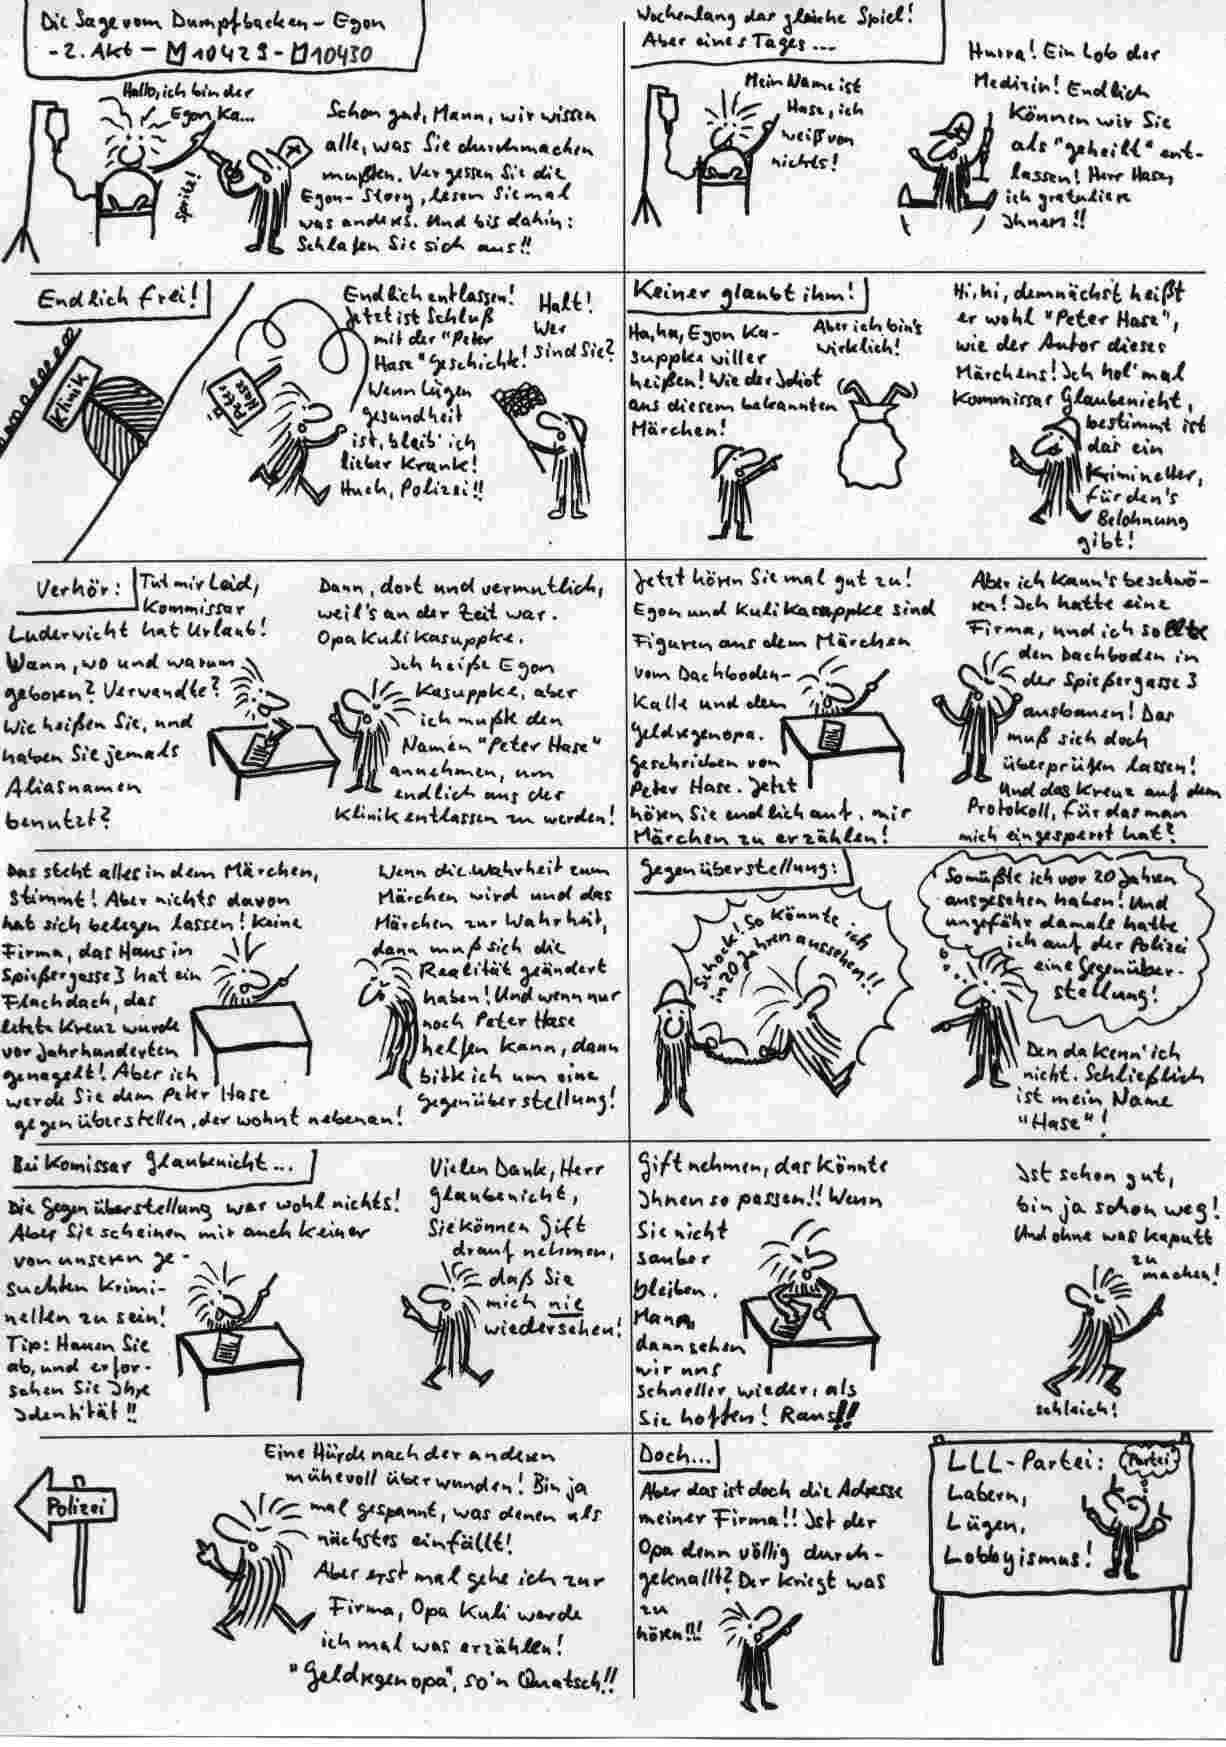 Die Sage vom Dumpfbacken-Egon
- 2. Akt - 10429 - 10430
Hallo, ich bin der
Egon Ka...
Spritz!
Schon gut, Mann, wir wissen
alle, was Sie durchmachen
mußten. Vergessen Sie die
Egon-Story, lesen Sie mal
was anderes. Und bis dahin:
Schlafen Sie sich aus!!
Wochenlang das gleiche Spiel!
Aber eines Tages...
Mein Name ist
Hase, ich
weiß von
nichts!
Hurra! Ein Lob der
Medizin! Endlich
können wir Sie
als "geheilt" ent-
lassen! Herr Hase,
ich gratuliere
Ihnen!!
Endlich frei!
Klinik
Peter
Hase
Endlich entlassen!
Jetzt ist Schluß
mit der "Peter
Hase" Geschichte!
Wenn Lügen
gesundheit
ist, bleib' ich
lieber krank!
Huch, Polizei!!
Halt!
Wer
sind Sie?
Keiner glaubt ihm!
Ha, ha, Egon Ka-
suppke will er
heißen! Wie der Idiot
aus diesem bekannten
Märchen!
Aber ich bin's
wirklich!
Hi, hi, demnächst heißt
er wohl "Peter Hase",
wie der Autor dieses
Märchens! Ich hol' mal
Kommissar Glaubenicht,
bestimmt ist
das ein
Krimineller,
für den's
Belohnung
gibt!
Verhör:
Tut mir Leid,
Kommissar
Luderwicht hat Urlaub!
Wann, wo und warum
geboren? Verwandte?
Wie heißen Sie, und
haben Sie jemals
Aliasnamen
benutzt?
Dann, dort und vermutlich,
weil's an der Zeit war.
Opa Kuli Kasuppke.
Ich heiße Egon
Kasuppke, aber
ich mußte den
Namen "Peter Hase"
annehmen, um
endlich aus der
Klinik entlassen zu werden!
Jetzt hören Sie mal gut zu!
Egon und Kuli Kasuppke sind
Figuren aus dem Märchen
vom Dachboden-
Kalle und dem
Geldregenopa.
Geschrieben von
Peter Hase. Jetzt
hören Sie endlich auf, mir
Märchen zu erzählen!
Aber ich kann's beschwö-
ren! Ich hatte eine
Firma, und ich sollte
den Dachboden in
der Spießergasse 3
ausbauen! Das
muß sich doch
überprüfen lassen!
Und das Kreuz auf dem
Protokoll, für das man
mich eingesperrt hat?
Das steht alles in dem Märchen,
stimmt! Aber nichts davon
hat sich belegen lassen! Keine
Firma, das Haus in
Spießergasse 3 hat ein
Flachdach, das
letzte Kreuz wurde
vor Jahrhunderten
genagelt! Aber ich
werde Sie dem Peter Hase
gegenüberstellen, der wohnt nebenan!
Wenn die Wahrheit zum
Märchen wird und das
Märchen zur Wahrheit,
dann muß sich die
Realität geändert
haben! Und wenn nur
noch Peter Hase
helfen kann, dann
bitte ich um eine
Gegenüberstellung!
Gegenüberstellung:
Schock! So könnte ich
in 20 Jahren aussehen!!
So müßte ich vor 20 Jahren
ausgesehen haben! Und
ungefähr damals hatte
ich auf der Polizei
eine Gegenüber-
stellung!
Den da kenn' ich
nicht. Schließlich
ist mein Name
"Hase"!
Bei Komissar Glaubenicht...
Die Gegenüberstellung war wohl nichts!
Aber Sie scheinen mir auch keiner
von unseren ge-
suchten Krimi-
nellen zu sein!
Tip: Hauen Sie
ab, und erfor-
schen Sie Ihre
Identität!!
Vielen Dank, Herr
Glaubenicht,
Sie können Gift
drauf nehmen,
daß Sie
mich nie
wiedersehen!
Gift nehmen, das könnte
Ihnen so passen!! Wenn
Sie nicht
sauber
bleiben,
Mann,
dann sehen
wir uns
schneller wieder, als
Sie hoffen! Raus!!
Ist schon gut,
bin ja schon weg!
Und ohne was kaputt
zu
machen!
schleich!
Polizei
Eine Hürde nach der anderen
mühevoll überwunden! Bin ja
mal gespannt, was denen als
nächstes einfällt!
Aber erst mal gehe ich zur
Firma, Opa Kuli werde
ich mal was erzählen!
"Geldregenopa", so'n Quatsch!!
Doch...
Aber das ist doch die Adresse
meiner Firma!! Ist der
Opa denn völlig durch-
geknallt? Der kriegt was
zu
hören!!!
LLL-Partei:
Labern,
Lügen,
Lobbyismus!
Partei